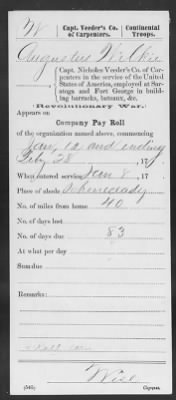 W
Capt. Veeder's Co.
of Carpenters.
Continental
Troops.
Augustus Wilkie
Capt. Nicholas Veeder's Co. of Car-
penters in the service of the United
States of America, employed at Sar-
atoga and Fort George in build-
ing barracks, bateaux, &c.
Revolutionary War.
Appears on
Company Pay Roll
of the organization named above, commencing
Jan. 12 and ending
Feby 28, 17
When entered service Jan 8, 17
Place of abode Schenectady
No. of miles from home 40
No. of days lost
No. of days due 83
At what per day
Sum due
Remarks:
(545)
Wise
Copyist.